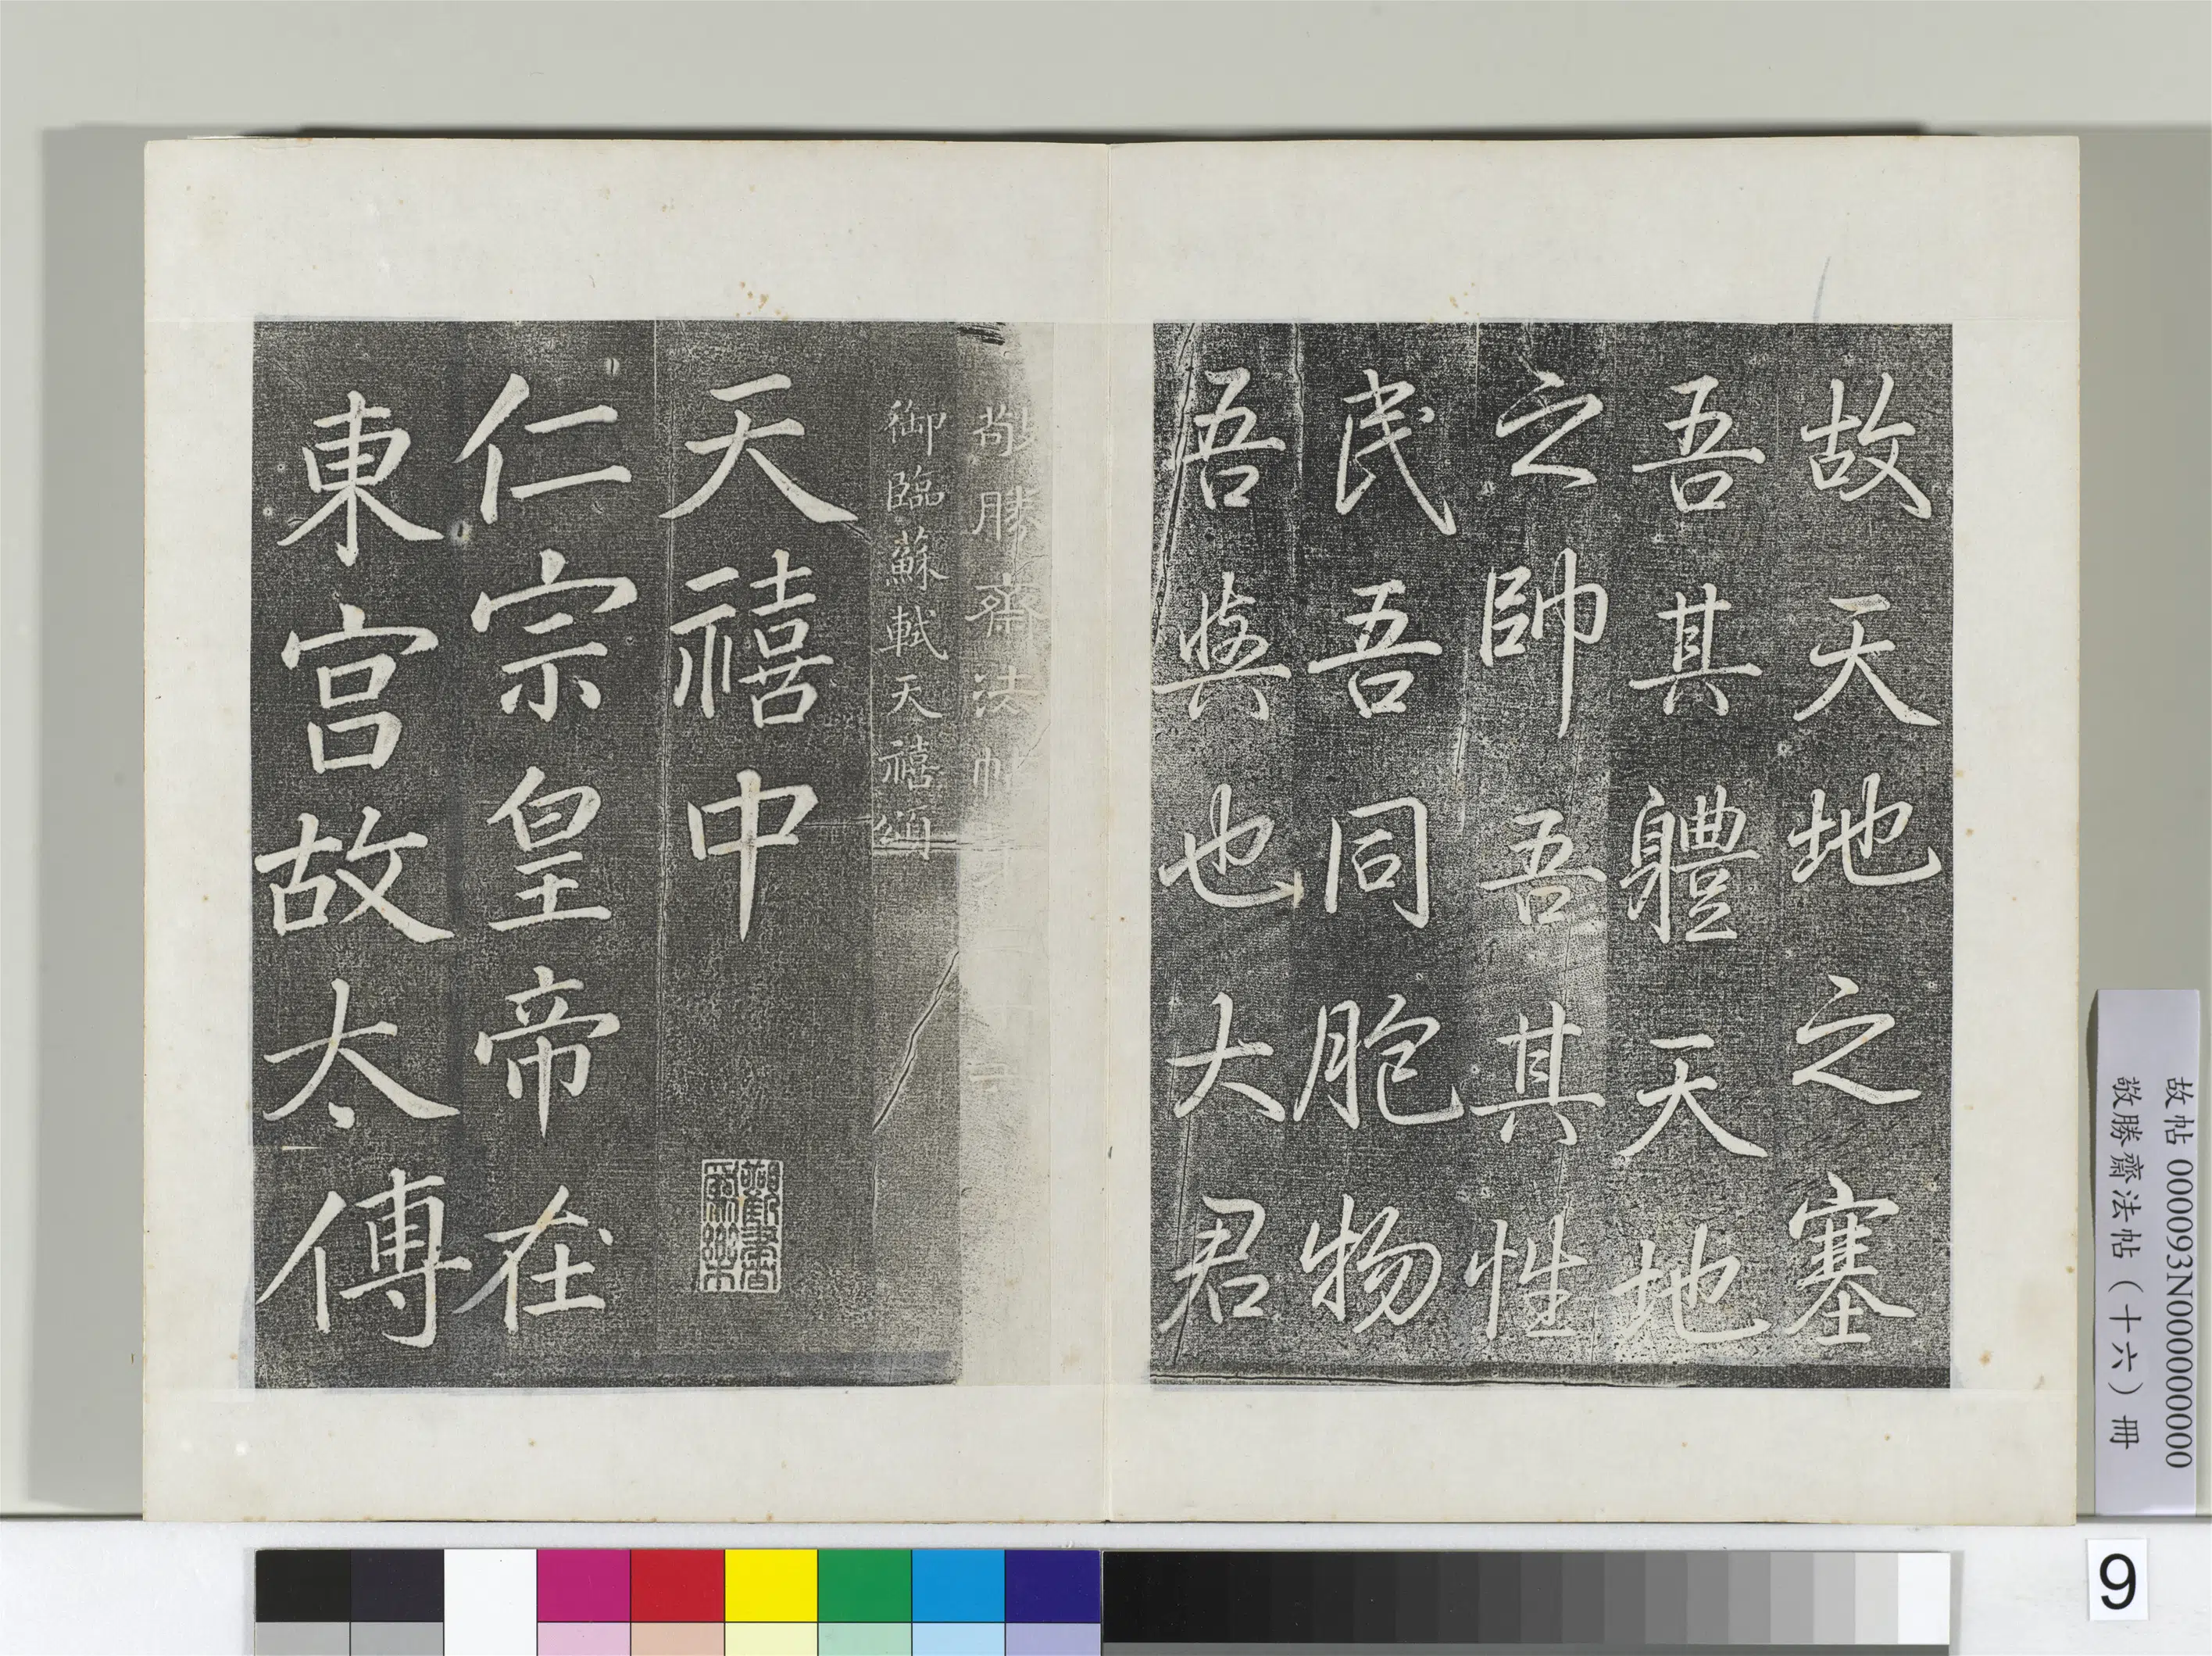 故天地之塞
吾其體天地
之帥吾其性
民吾同胞物
吾與也大君
敬勝齋法帖
御臨蘇軾天禧頌
天禧中
仁宗皇帝在
東宮故太傅
故帖 000093N000000000
敬勝齋法帖（十六）冊
9